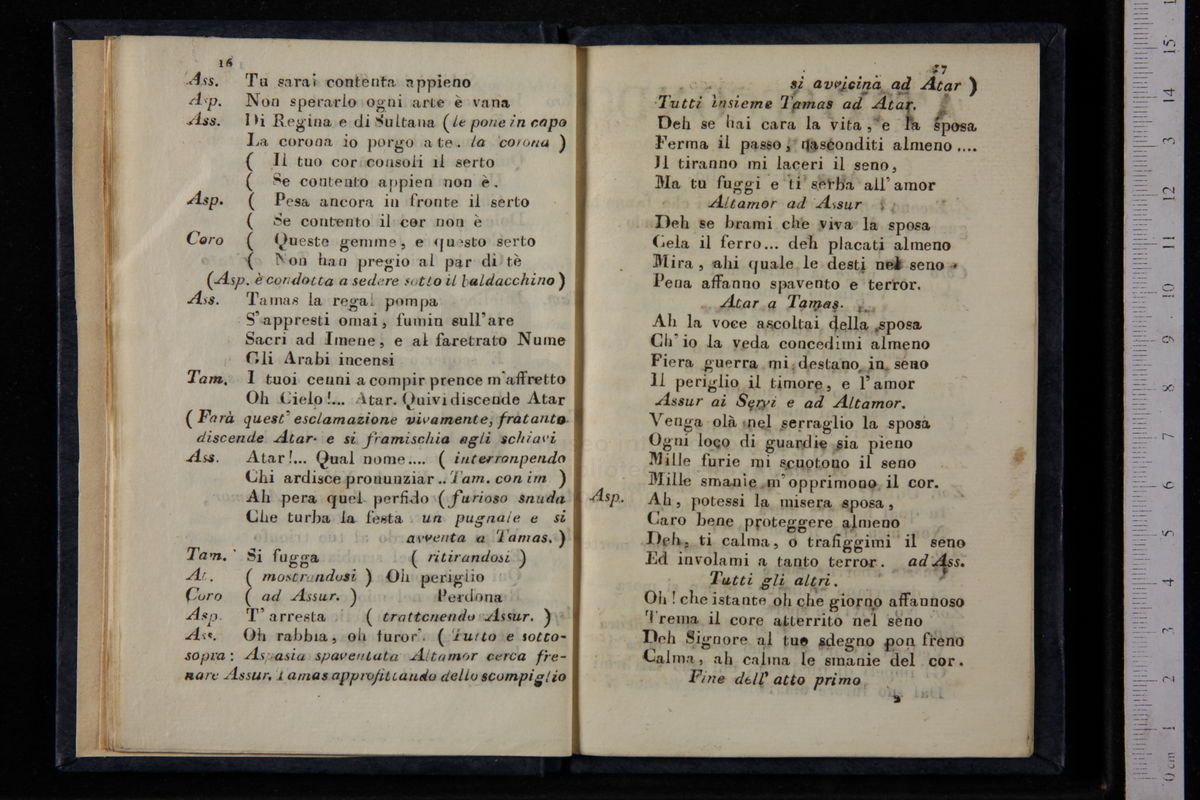 16
Ass. Tu sarai contenta appieno
Asp. Non sperarlo ogni arte è vana
Ass. Di Regina e di Sultana (le pone in capo
La corona io porgo a te. la corona )
( Il tuo cor consoli il serto
( Se contento appien non è.
Asp. ( Pesa ancora in fronte il serto
( Se contento il cor non è
Coro ( Queste gemme, e questo serto
( Non han pregio al par di tè
(Asp. è condotta a sedere sotto il baldacchino )
Ass. Tamas la regal pompa
S'appresti omai, fumin sull'are
Sacri ad Imene, e al faretrato Nume
Gli Arabi incensi
Tam. I tuoi cenni a compir prence m'affretto
Oh Cielo!... Atar. Quivi discende Atar
( Farà quest' esclamazione vivamente, fratanto
discende Atar e si framischia agli schiavi
Ass. Atar!... Qual nome.... ( interronpendo
Chi ardisce pronunziar .. Tam. con im )
Ah pera quel perfido (furioso snuda
Che turba la festa un pugnale e si
avventa a Tamas. )
Tam. Si fugga ( ritirandosi )
At. ( mostrandosi ) Oh periglio
Coro ( ad Assur. ) Perdona
Asp. T'arresta ( trattenendo Assur. )
Ass. Oh rabbia, oh furor. ( Tutto e sotto-
sopra: Aspasia spaventata Altamor cerca fre-
nare Assur. Tamas approfittando dello scompiglio
17
si avvicina ad Atar )
Tutti insieme Tamas ad Atar.
Deh se hai cara la vita, e la sposa
Ferma il passo, nasconditi almeno....
Il tiranno mi laceri il seno,
Ma tu fuggi e ti serba all'amor
Altamor ad Assur
Deh se brami che viva la sposa
Cela il ferro... deh placati almeno
Mira, ahi quale le desti nel seno
Pena affanno spavento e terror.
Atar a Tamas.
Ah la voce ascoltai della sposa
Ch'io la veda concedimi almeno
Fiera guerra mi destano in seno
Il periglio il timore, e l'amor
Assur ai Servi e ad Altamor.
Venga olà nel serraglio la sposa
Ogni loco di guardie sia pieno
Mille furie mi scuotono il seno
Mille smanie m'opprimono il cor.
Asp. Ah, potessi la misera sposa,
Caro bene proteggere almeno
Deh, ti calma, o trafiggimi il seno
Ed involami a tanto terror. ad Ass.
Tutti gli altri.
Oh! che istante oh che giorno affannoso
Trema il core atterrito nel seno
Deh Signore al tuo sdegno pon freno
Calma, ah calma le smanie del cor.
Fine dell' atto primo
0 cm 1 2 3 4 5 6 7 8 9 10 11 12 13 14 15